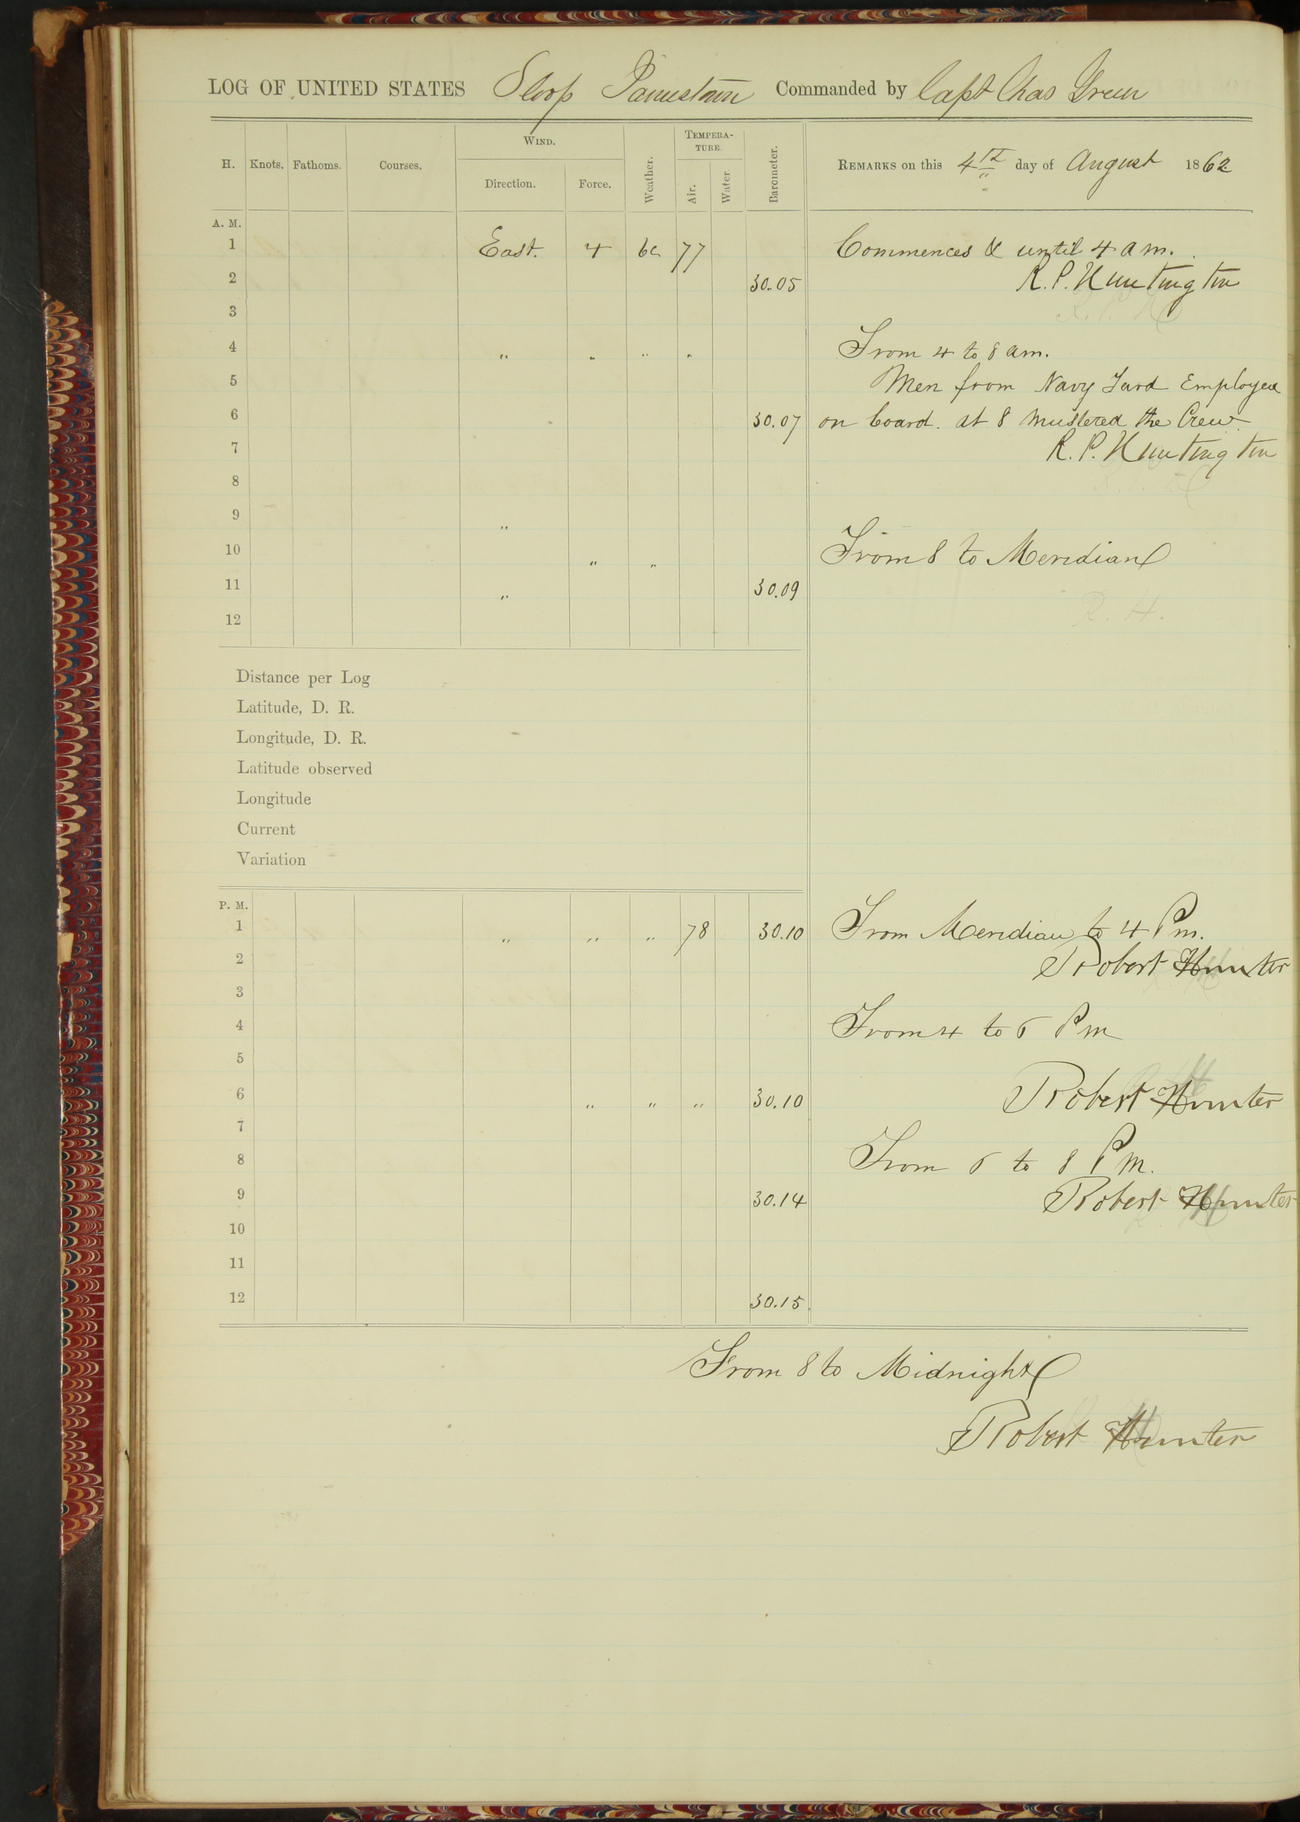 LOG OF UNITED STATES Sloop Jamestown Commanded by Capt Chas Green
H. Knots. Fathoms. Courses. WIND. Direction. Force. Weather. TEMPERATURE. Air. Water. Barometer. REMARKS on this 4th day of August 1862
A. M.
1 East. 4 bc 77 Commences & until 4 a m.
2 30.05 R. P. Huntington
3
4 " " " " From 4 to 8 am.
5 Men from Navy Yard Employed
6 30.07 on board. at 8 mustered the Crew
7 R. P. Huntington
8
9 "
10 " " From 8 to Meridian
11 " 30.09
12 R. H.
Distance per Log
Latitude, D. R.
Longitude, D. R.
Latitude observed
Longitude
Current
Variation
P. M.
1 " " " 78 30.10 From Meridian to 4 Pm.
2 Robert Hunter
3
4 From 4 to 6 Pm
5
6 " " " 30.10 Robert Hunter
7
8 From 6 to 8 PM.
9 30.14 Robert Hunter
10
11
12 30.15
From 8 to Midnight
Robert Hunter